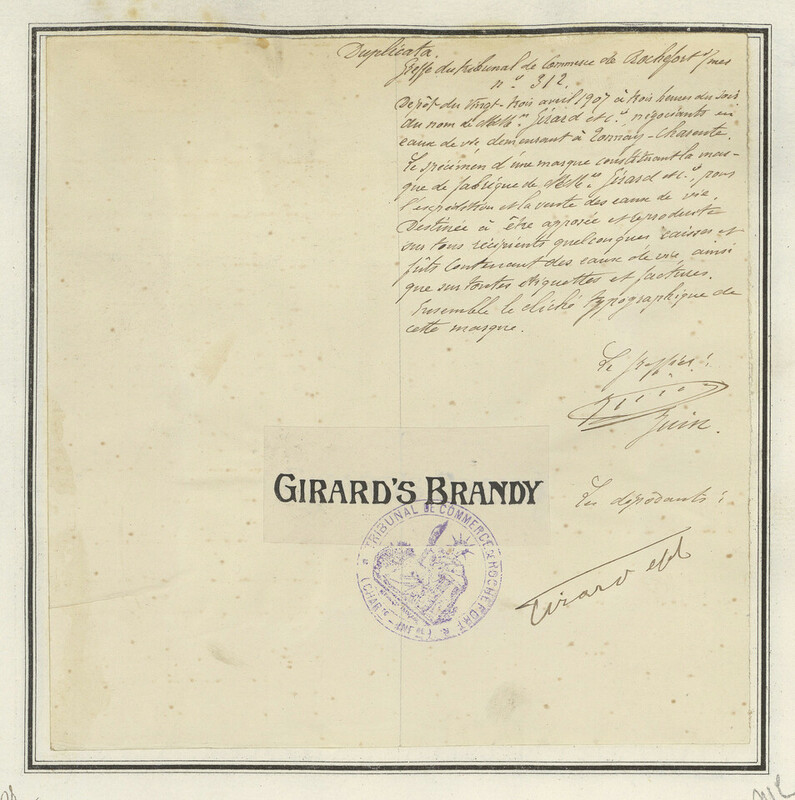 Duplicata.
Greffe du tribunal de Commerce de Rochefort s/mer
n° 312.
Dépôt du vingt-trois avril 1907 à trois heures du soir
au nom de MM.rs Girard et C.ie négociants en
eaux de vie demeurant à Tonnay-Charente.
Le spécimen d'une marque constituant la mar-
que de fabrique de MM.rs Girard et C.ie, pour
l'expédition et la vente des eaux de vie.
Destinée à être apposée et reproduite
sur tous récipients quelconques caisses et
fûts contenant des eaux de vie, ainsi
que sur toutes étiquettes et factures.
Ensemble le cliché typographique de
cette marque.
Le greffier:
Juin.
GIRARD'S BRANDY
Les déposants:
TRIBUNAL DE COMMERCE DE ROCHEFORT
(CHARTE-INFRE)
Girard et Cie